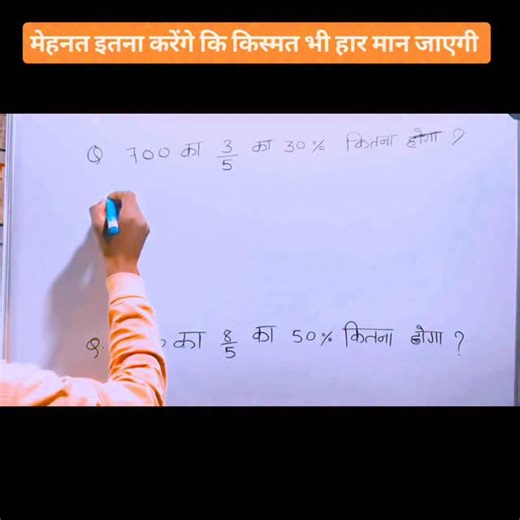 मेहनत इतना करेंगे कि किस्मत भी हार मान जाएगी
Q 700 का 3/5 का 30% कितना होगा ?
Q. का 8/5 का 50% कितना होगा ?